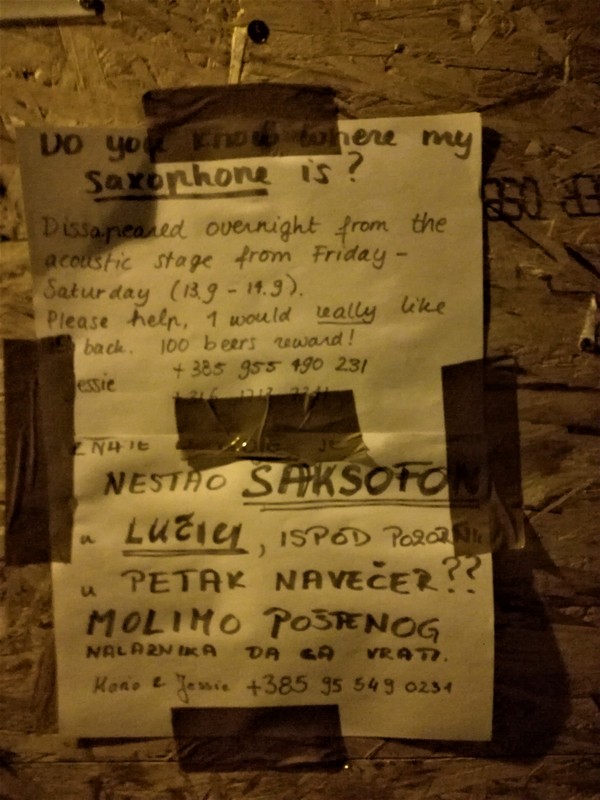 Do you know where my
saxophone is?
Dissapeared overnight from the
acoustic stage from Friday -
Saturday (13.9 - 14.9).
Please help, I would really like
back. 100 beers reward!
+385 955 490 231
essie
NESTAO SAKSOFON
u LUČICI, ISPOD
u PETAK NAVEČER??
MOLIMO POŠTENOG
NALAZNIKA DA GA VRATI.
& Jessie +385 95 549 0231